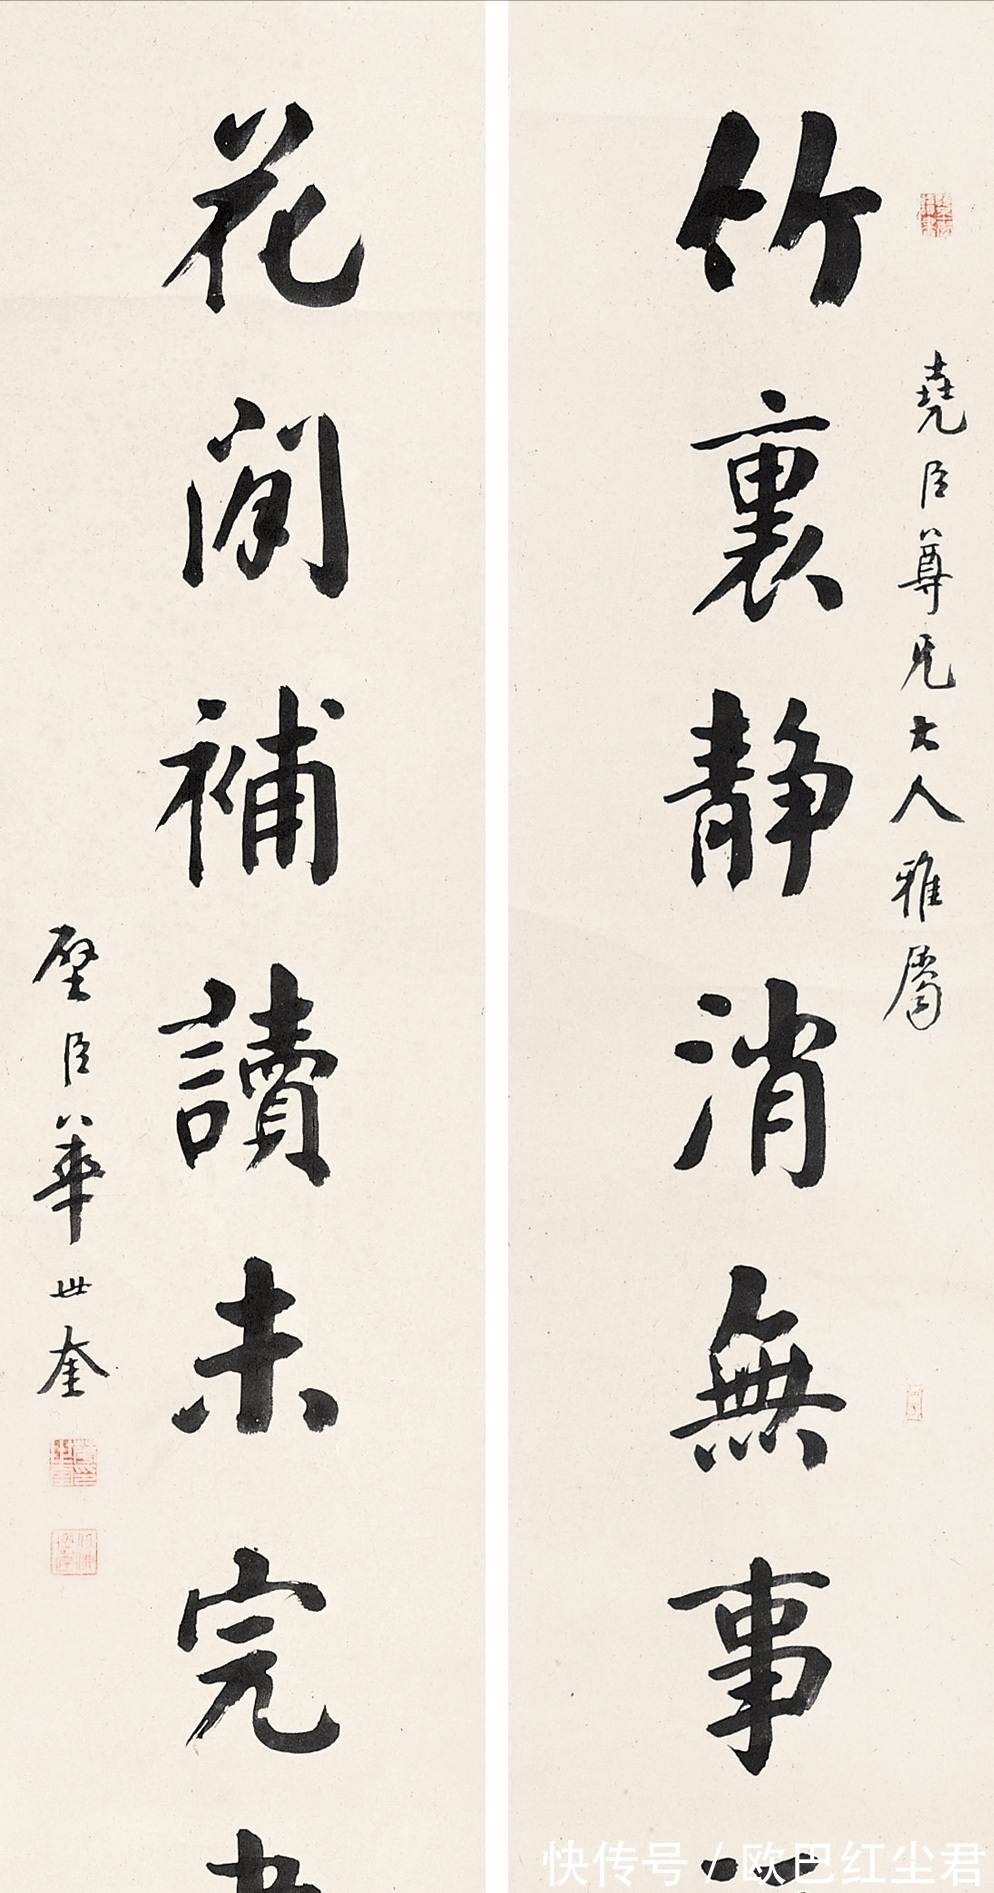 堯臣尊兄大人雅屬
竹裏靜消無事
花間補讀未完
璧臣華世奎
快传号 / 欧巴红尘君